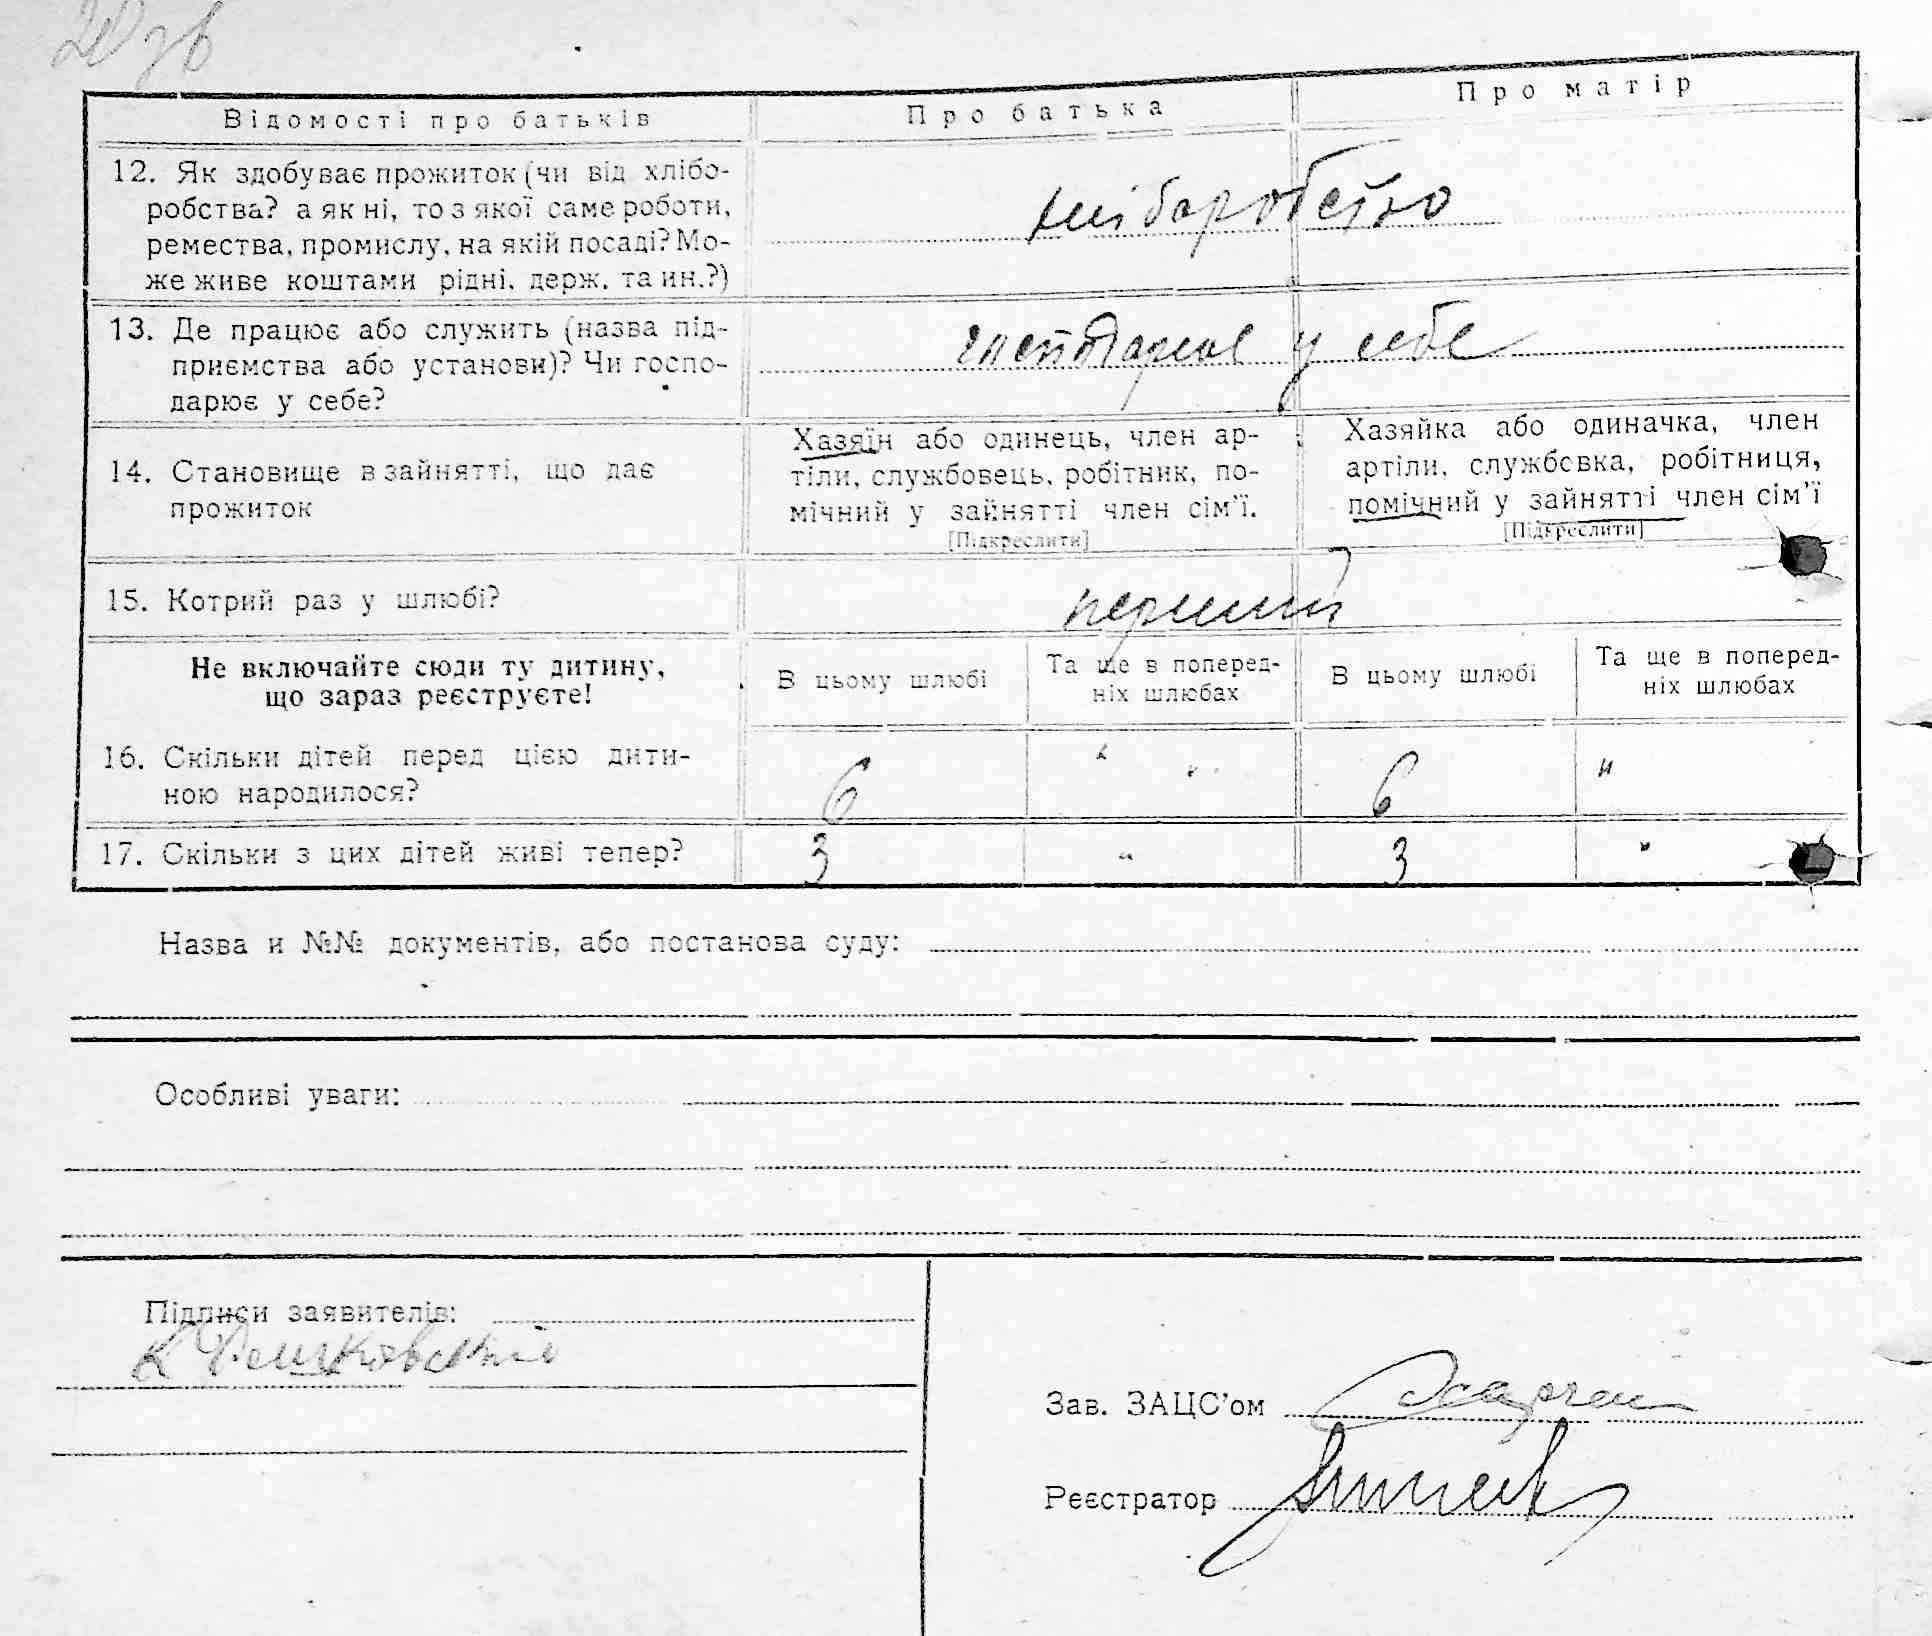 20 зв
Відомості про батьків
Про батька
Про матір
12. Як здобуває прожиток (чи від хлібо-
робства? а як ні, то з якої саме роботи,
ремества, промислу, на якій посаді? Мо-
же живе коштами рідні, держ. та ин.?)
хліборобство
13. Де працює або служить (назва під-
приємства або установи)? Чи госпо-
дарює у себе?
господарює у себе
14. Становище в зайнятті, що дає
прожиток
Хазяїн або одинець, член ар-
тіли, службовець, робітник, по-
мічний у зайнятті член сім'ї.
[Підкреслити]
Хазяйка або одиначка, член
артіли, службовка, робітниця,
помічний у зайнятті член сім'ї
[Підкреслити]
15. Котрий раз у шлюбі?
перший
Не включайте сюди ту дитину,
що зараз реєструєте!
В цьому шлюбі
Та ще в поперед-
ніх шлюбах
В цьому шлюбі
Та ще в поперед-
ніх шлюбах
16. Скільки дітей перед цією дити-
ною народилося?
6 " " 6 "
17. Скільки з цих дітей живі тепер?
3 " 3 "
Назва и №№ документів, або постанова суду:
Особливі уваги:
Підписи заявителів:
К
Зав. ЗАЦС'ом
Реєстратор